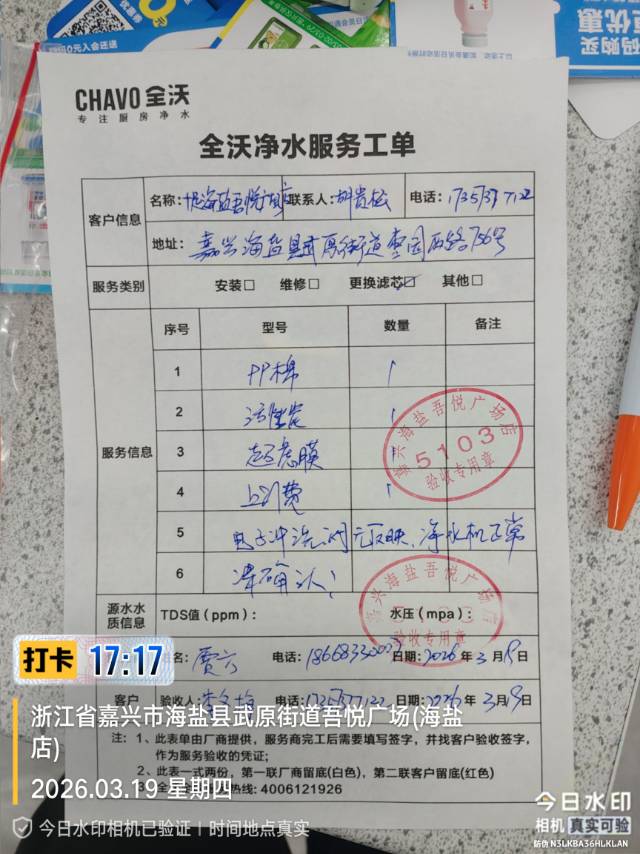 0元入会还送
优惠券
以上活动时
码购买
点优惠
CHAVO 全沃
专注厨房净水
全沃净水服务工单
客户信息
名称: 海盐吾悦广场店 联系人: 胡贵松 电话:
地址: 嘉兴海盐县武原街道枣园西路756号
服务类别 安装□ 维修□ 更换滤芯☑ 其他□
服务信息
序号 型号 数量 备注
1 PP棉 1
2 活性炭 1
3 超滤膜 1
4 上门费 1
5 电子冲洗阀无反映,净水机正常
6 请确认!
嘉兴海盐吾悦广场店
5103
验收专用章
源水水质信息 TDS值(ppm): 水压(mpa):
嘉兴海盐吾悦广场店
验收专用章
姓名: 贾六 电话: 日期: 2026年3月19日
客户 验收人: 电话: 日期: 2026年3月19日
注: 1、此表单由厂商提供,服务商完工后需要填写签字,并找客户验收签字,
作为服务验收的凭证;
2、此表一式两份,第一联厂商留底(白色),第二联客户留底(红色)
热线: 4006121926
打卡 17:17
浙江省嘉兴市海盐县武原街道吾悦广场(海盐
店)
2026.03.19 星期四
今日水印相机已验证 | 时间地点真实
今日水印
相机 真实可验
防伪 N3LKBA36HLKLAN